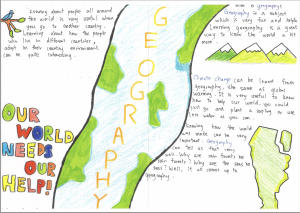 Knowing about people all around
the world is very useful when
you go to another country.
Learning about how the people
who live in different countries,
adapt to their country environment
can be quite interesting.
GEOGRAPHY
Geography is a subject
which is very fun and helpful
Learning geography is a great
way to know the world a bit
more.
Climate change can be learnt from
geography, the same as global
warming. It is very useful to know
how to help our world, you could
just go and plant a
less water as you can.
Knowing how the world
was made can be very
important. Geography
can tell us that very
well. Why are rain forests
rain forests? Why are seas
seas? Well, it all comes up to
geography.
OUR
WORLD
NEEDS
OUR
HELP!